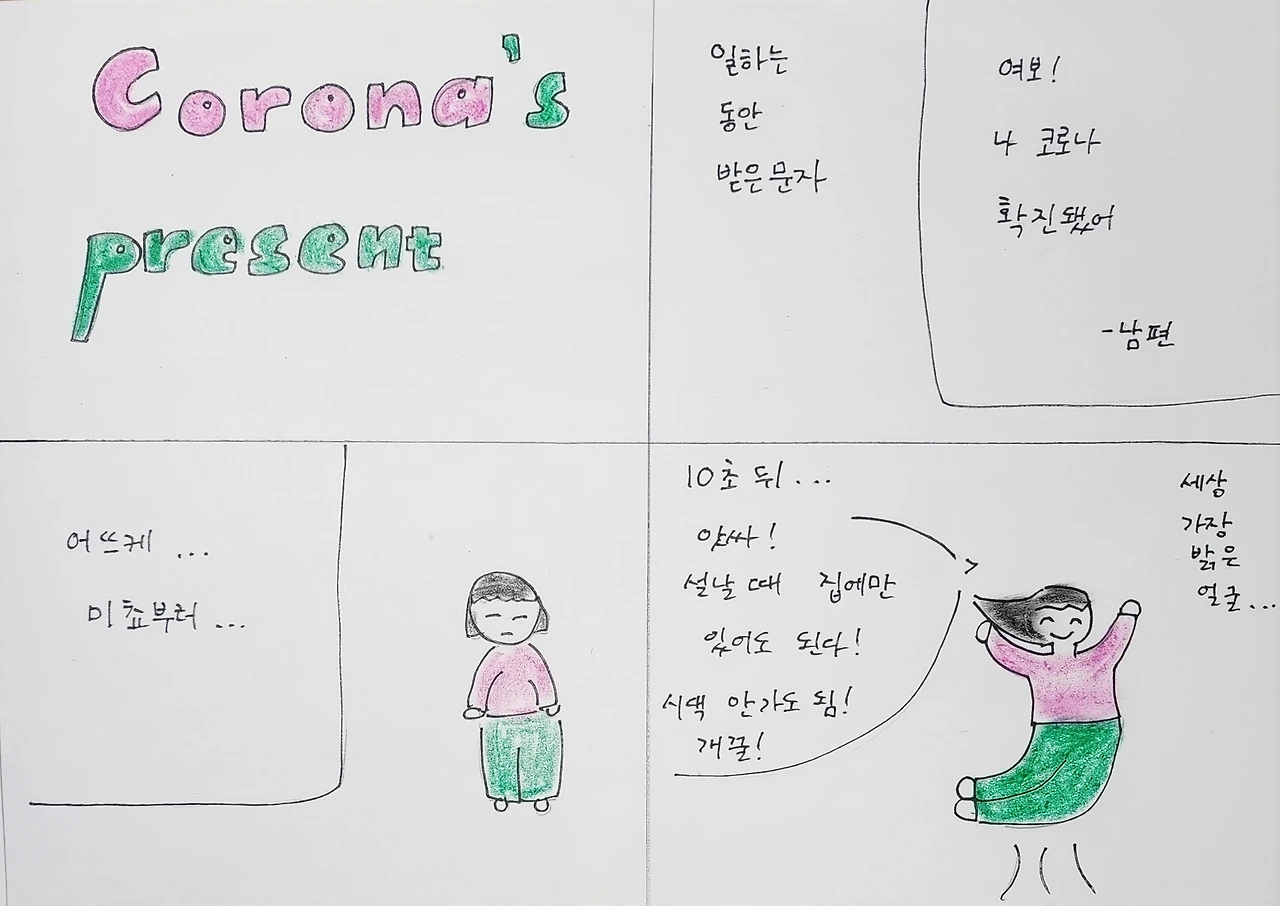 Corona's
present
일하는
동안
받은 문자
여보!
나 코로나
확진됐어
-남편
어쯔케 ...
미쵸부러 ...
10초 뒤...
앗싸!
설날 때 집에만
있어도 된다!
시댁 안가도 됨!
개꿀!
세상
가장
밝은
얼굴...